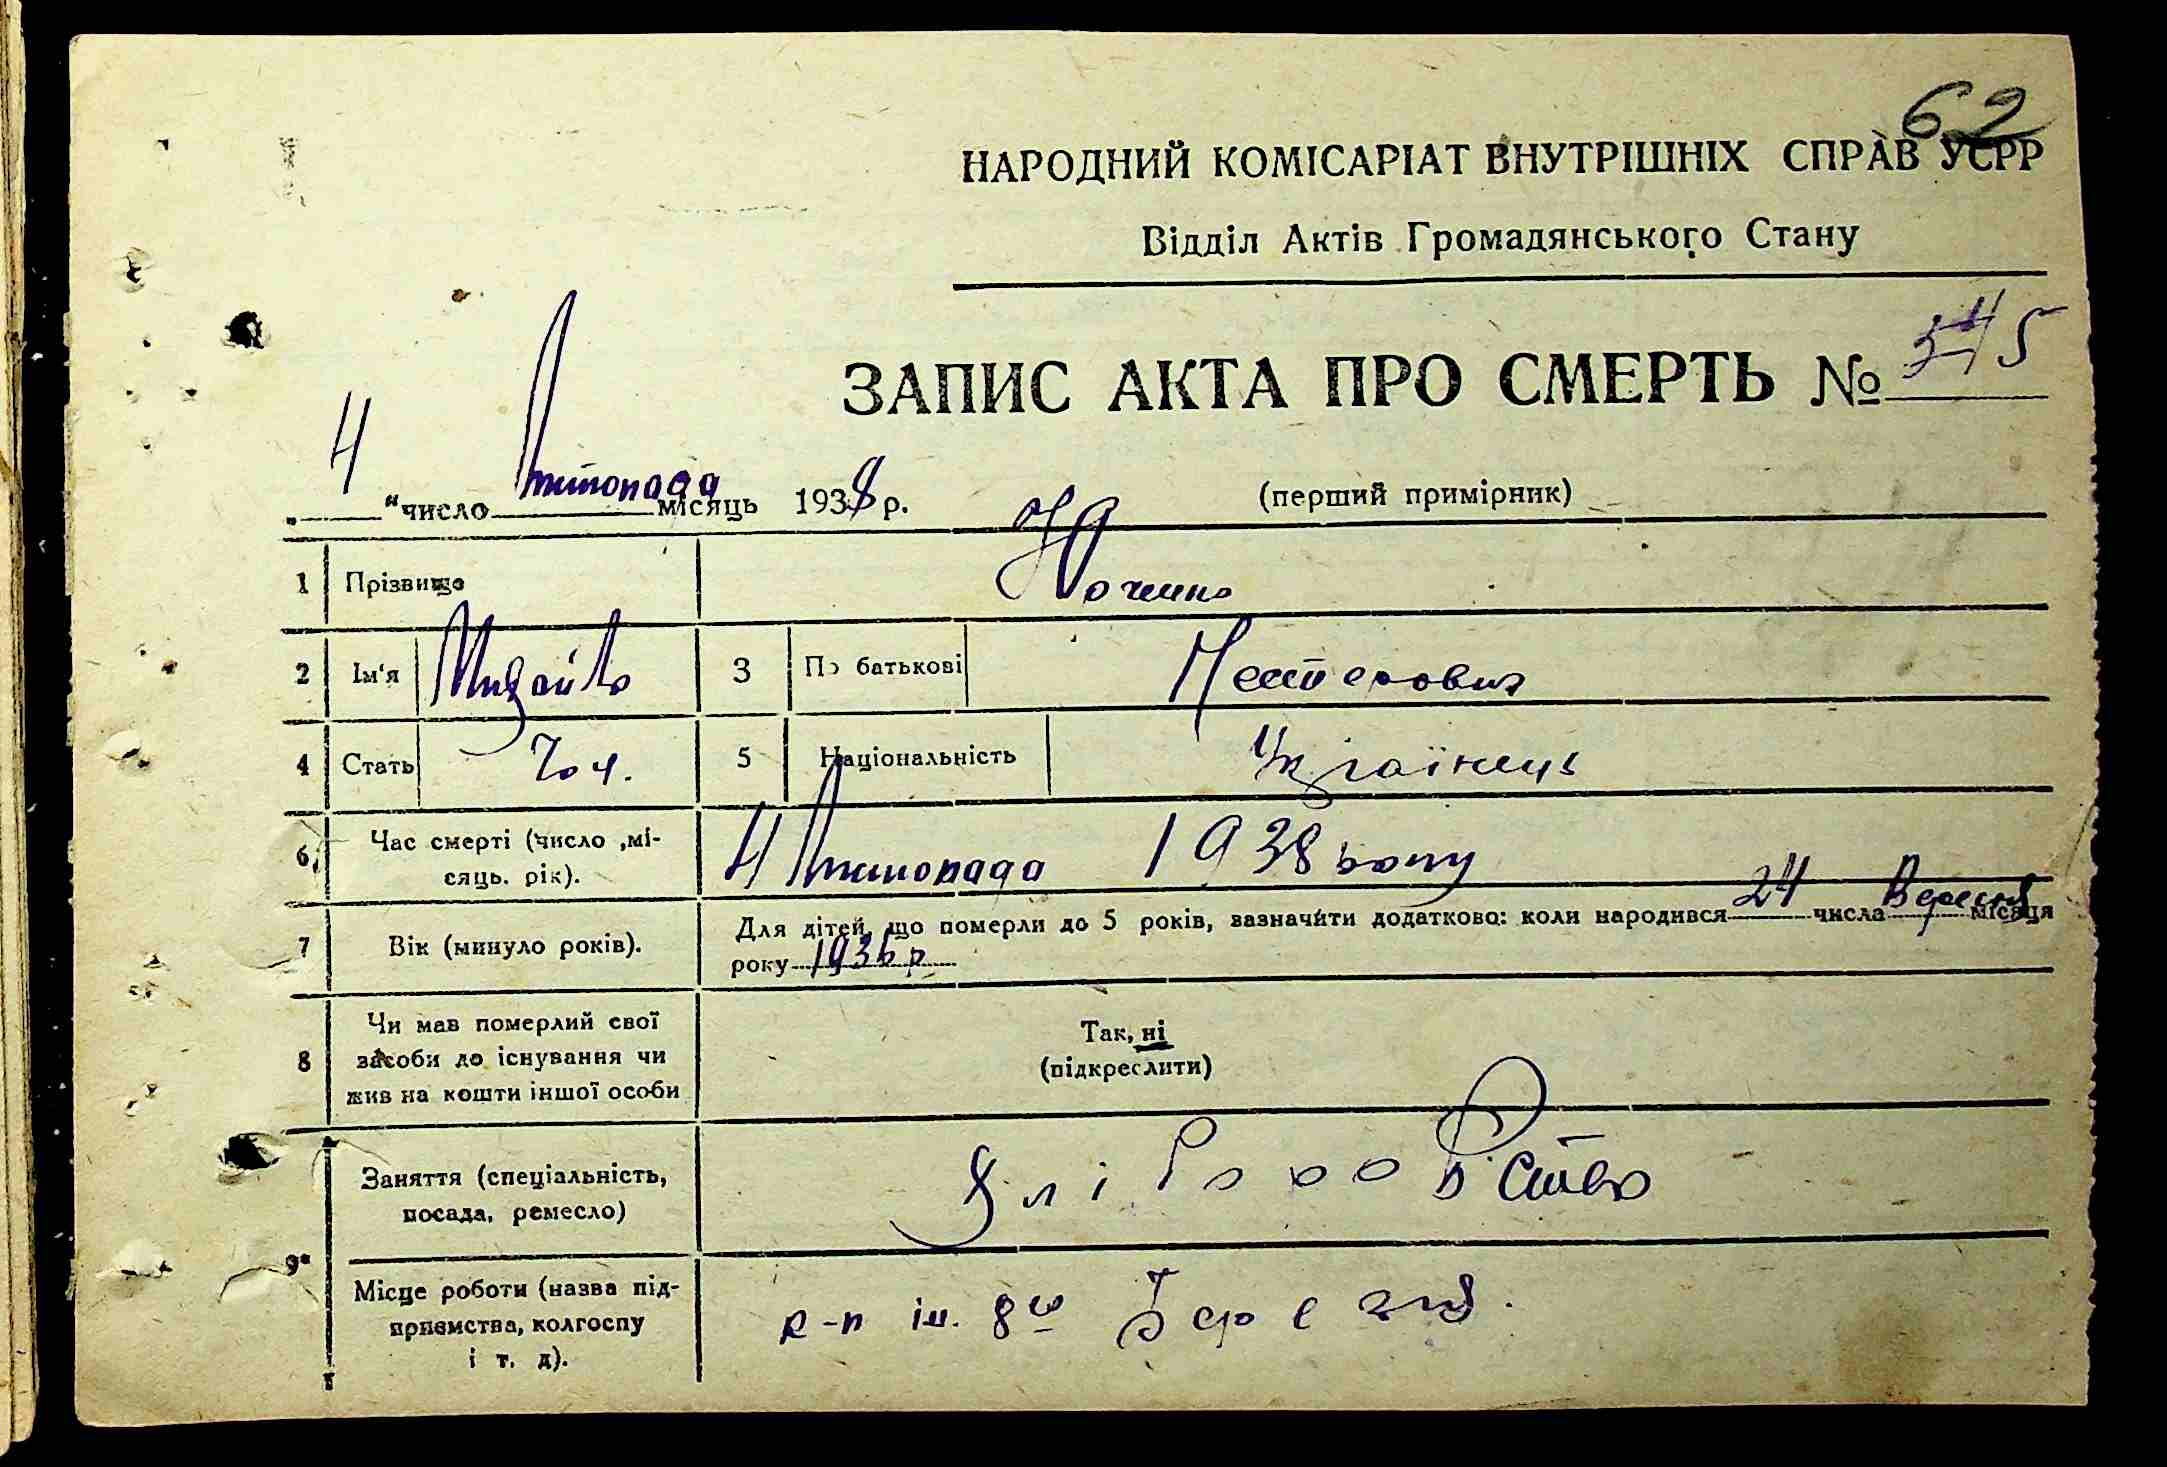 62
НАРОДНИЙ КОМІСАРІАТ ВНУТРІШНІХ СПРАВ УСРР
Відділ Актів Громадянського Стану
ЗАПИС АКТА ПРО СМЕРТЬ № 5
4 "число листопада місяць 1938 р.
(перший примірник)
1 Прізвище
2 Ім'я Михайло 3 По батькові Нестерович
4 Стать Чол. 5 Національність Українець
6 Час смерті (число ,мі-
сяць. рік). 4 листопада 1938 року
7 Вік (минуло років). Для дітей, що померли до 5 років, зазначити додатково: коли народився 24 числа Вересня місяця
року 1936 р
8 Чи мав померлий свої
засоби до існування чи
жив на кошти іншої особи
Так, ні
(підкреслити)
9* Заняття (спеціальність,
посада, ремесло) хліборобство
Місце роботи (назва під-
приємства, колгоспу
і т. д).
к-п ім. 8го Березня.